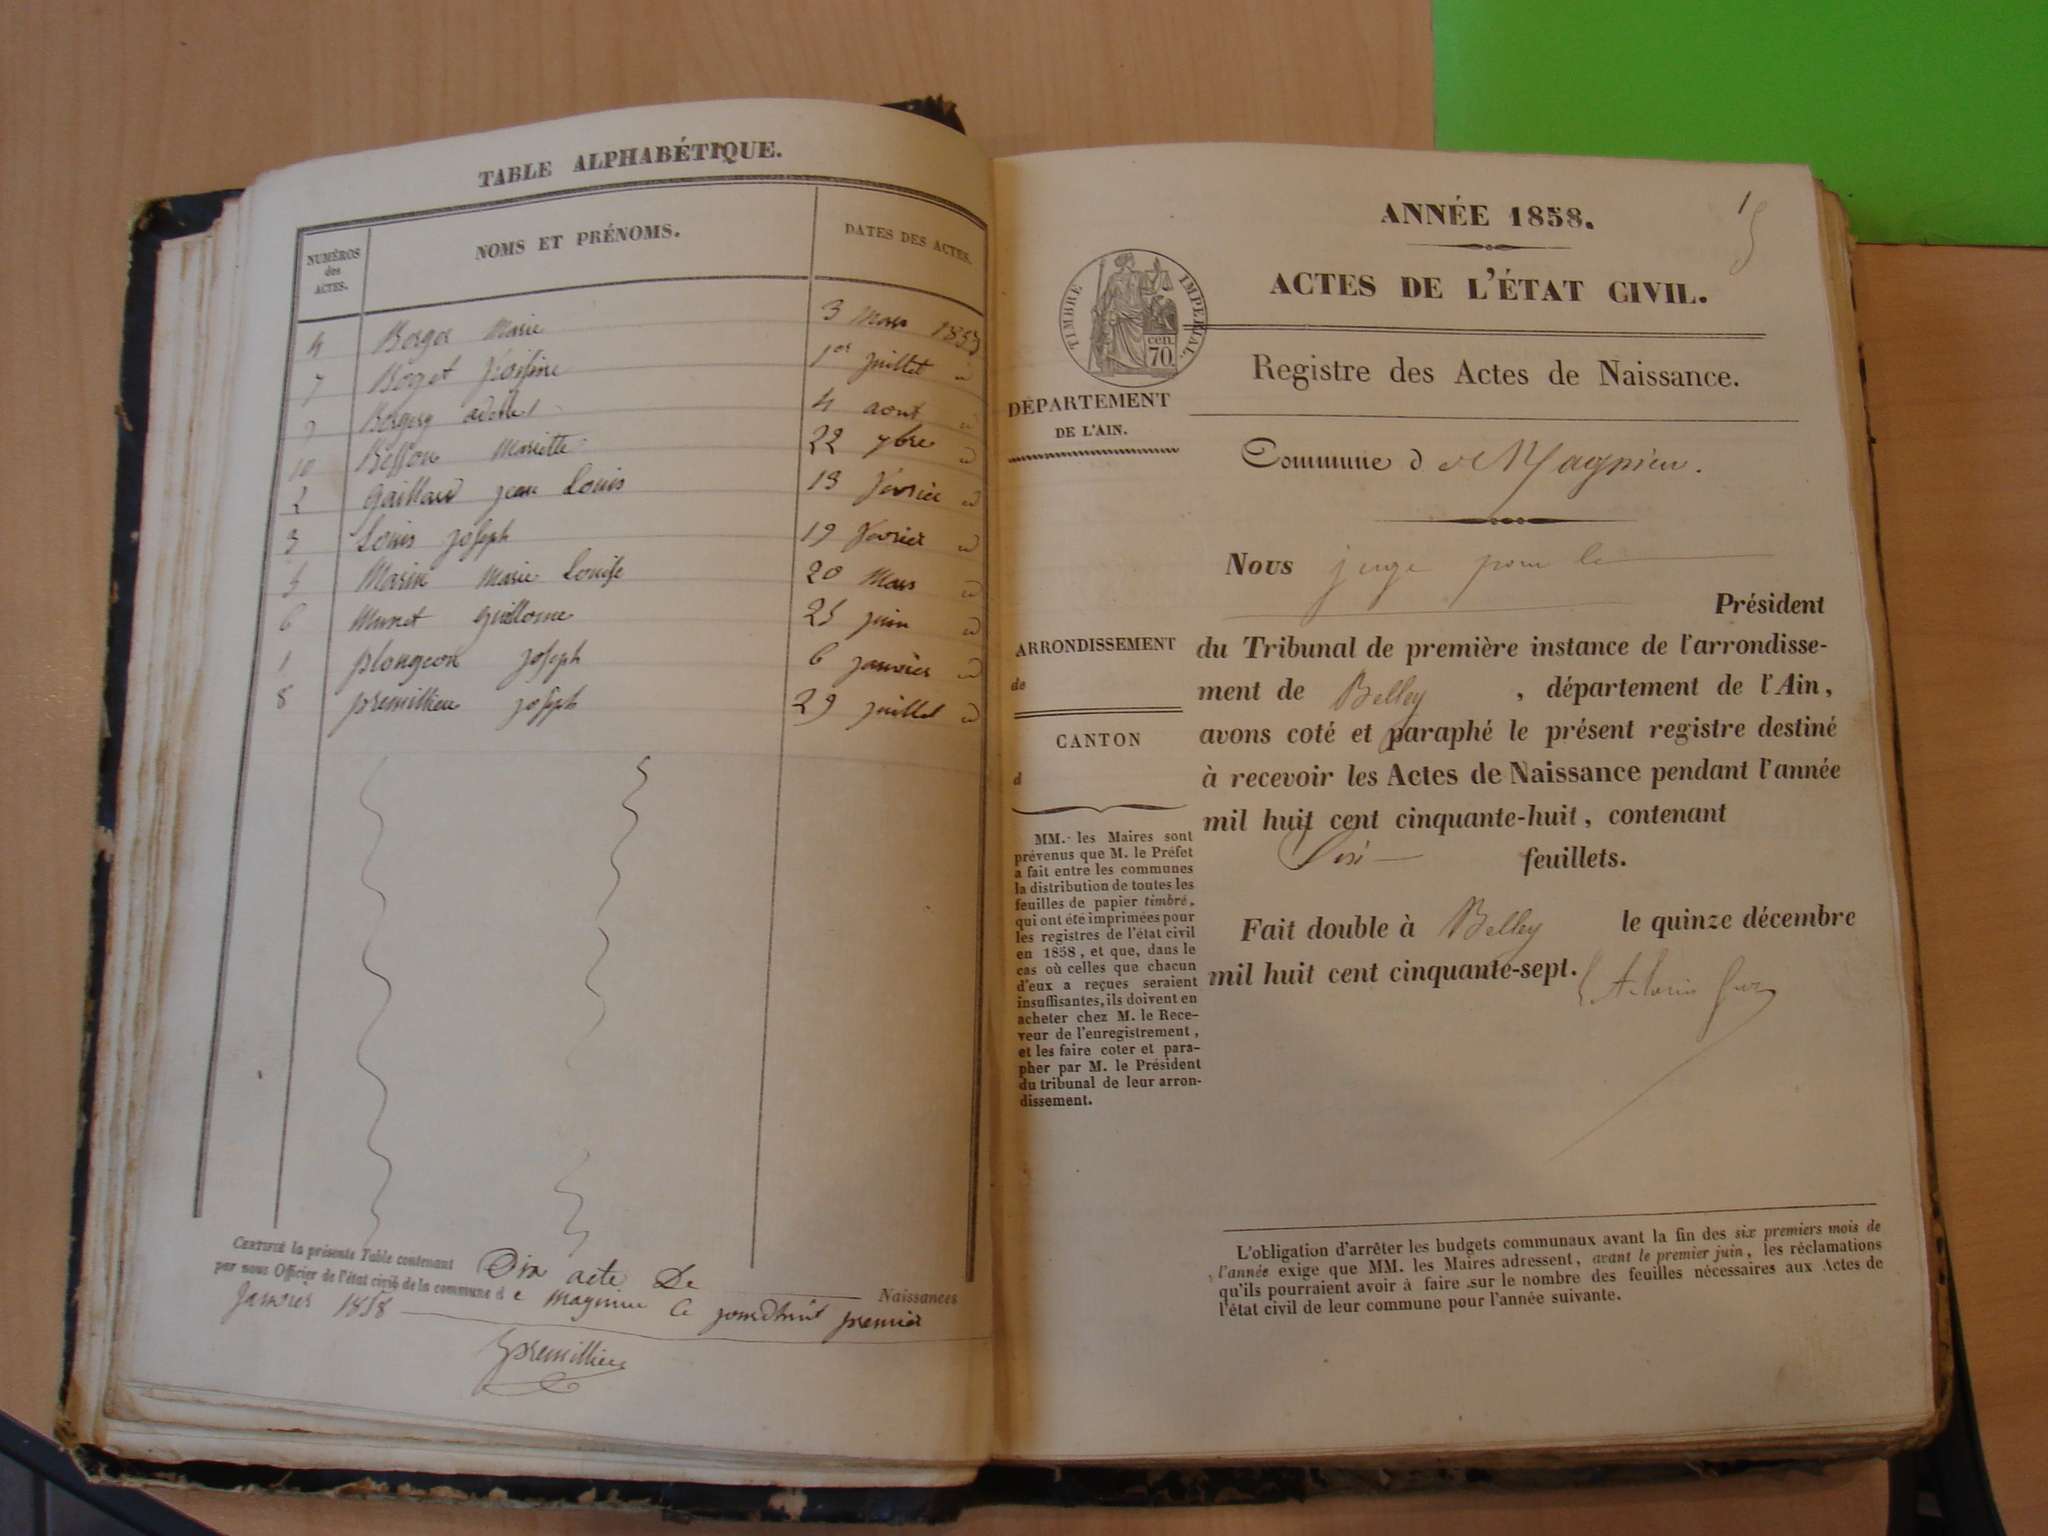 TABLE ALPHABÉTIQUE.
NUMÉROS des ACTES. NOMS ET PRÉNOMS. DATES DES ACTES.
4 Marie 3 Mars
7 1er juillet
4 aout
10 Besson Mariette 22 7bre
2 gaillard jean Louis 18 février
3 Louis joseph 19 février
5 Marin Marie Louise 20 Mars
6 guillome 25 juin
1 plongeon joseph 6 janvier
8 premillieu joseph 29 juillet
CERTIFIÉ la présente Table contenant Dix acte De Naissances
par nous Officier de l'état civil de la commune d e magnieu Ce jourdhuit premier
janvier 1858
premillieu
1
ANNÉE 1858.
ACTES DE L'ÉTAT CIVIL.
TIMBRE IMPERIAL.
cen. 70
Registre des Actes de Naissance.
DÉPARTEMENT
DE L'AIN.
Commune d e Magnieu.
Nous juge pour le
Président
ARRONDISSEMENT
de
CANTON
d
du Tribunal de première instance de l'arrondisse-
ment de Belley , département de l'Ain,
avons coté et paraphé le présent registre destiné
à recevoir les Actes de Naissance pendant l'année
mil huit cent cinquante-huit, contenant
feuillets.
Fait double à Belley le quinze décembre
mil huit cent cinquante-sept.
MM. les Maires sont
prévenus que M. le Préfet
a fait entre les communes
la distribution de toutes les
feuilles de papier timbré,
qui ont été imprimées pour
les registres de l'état civil
en 1858, et que, dans le
cas où celles que chacun
d'eux a reçues seraient
insuffisantes, ils doivent en
acheter chez M. le Rece-
veur de l'enregistrement,
et les faire coter et para-
pher par M. le Président
du tribunal de leur arron-
dissement.
L'obligation d'arrêter les budgets communaux avant la fin des six premiers mois de
l'année exige que MM. les Maires adressent, avant le premier juin, les réclamations
qu'ils pourraient avoir à faire sur le nombre des feuilles nécessaires aux Actes de
l'état civil de leur commune pour l'année suivante.